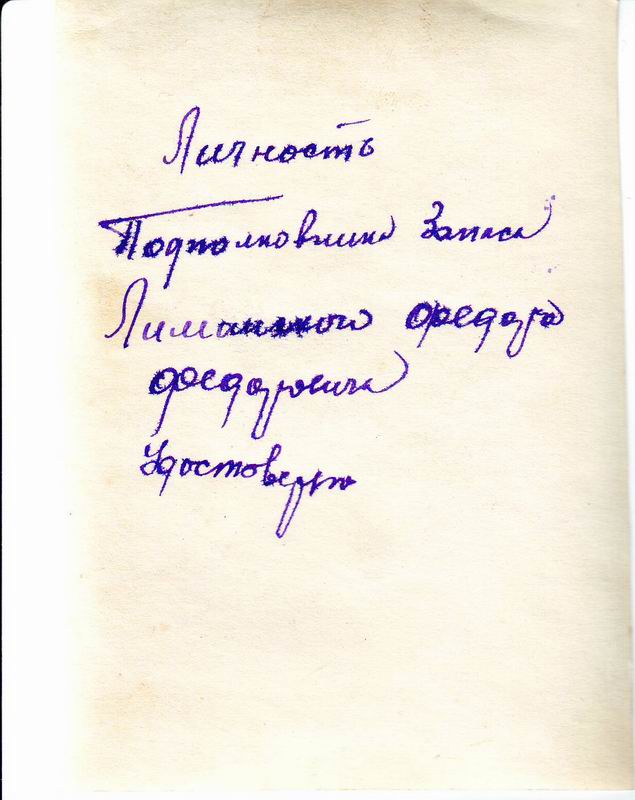 Личность
Подполковника Запаса
Лиманского Федора
Федоровича
Удостоверяю